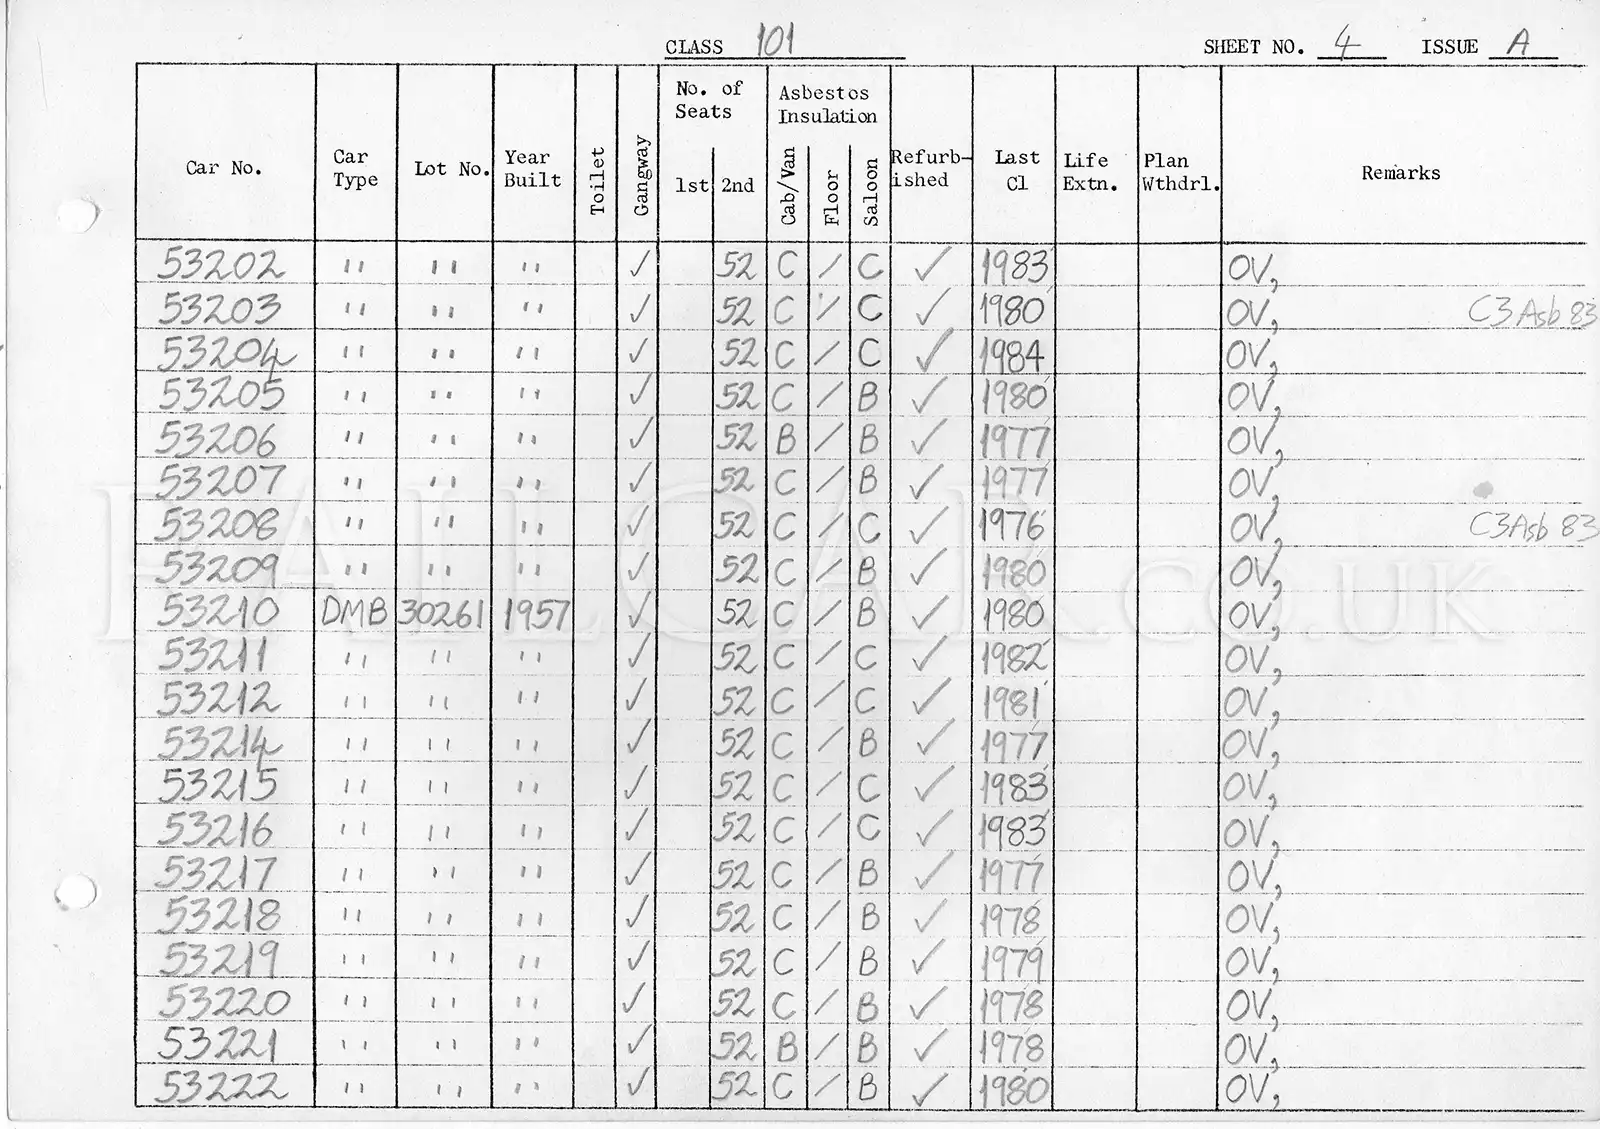 CLASS 101 SHEET NO. 4 ISSUE A
Car No. Car Type Lot No. Year Built Toilet Gangway No. of Seats 1st 2nd Asbestos Insulation Cab/Van Floor Saloon Refurb-ished Last Cl Life Extn. Plan Wthdrl. Remarks
53202 " " " ✓ 52 C / C ✓ 1983 OV,
53203 " " " ✓ 52 C / C ✓ 1980 OV, C3 Asb 83
53204 " " " ✓ 52 C / C ✓ 1984 OV,
53205 " " " ✓ 52 C / B ✓ 1980 OV,
53206 " " " ✓ 52 B / B ✓ 1977 OV,
53207 " " " ✓ 52 C / B ✓ 1977 OV,
53208 " " " ✓ 52 C / C ✓ 1976 OV, C3 Asb 83
53209 " " " ✓ 52 C / B ✓ 1980 OV,
53210 DMB 30261 1957 ✓ 52 C / B ✓ 1980 OV,
53211 " " " ✓ 52 C / C ✓ 1982 OV,
53212 " " " ✓ 52 C / C ✓ 1981 OV,
53214 " " " ✓ 52 C / B ✓ 1977 OV,
53215 " " " ✓ 52 C / C ✓ 1983 OV,
53216 " " " ✓ 52 C / C ✓ 1983 OV,
53217 " " " ✓ 52 C / B ✓ 1977 OV,
53218 " " " ✓ 52 C / B ✓ 1978 OV,
53219 " " " ✓ 52 C / B ✓ 1979 OV,
53220 " " " ✓ 52 C / B ✓ 1978 OV,
53221 " " " ✓ 52 B / B ✓ 1978 OV,
53222 " " " ✓ 52 C / B ✓ 1980 OV,
RAILCAR.CO.UK